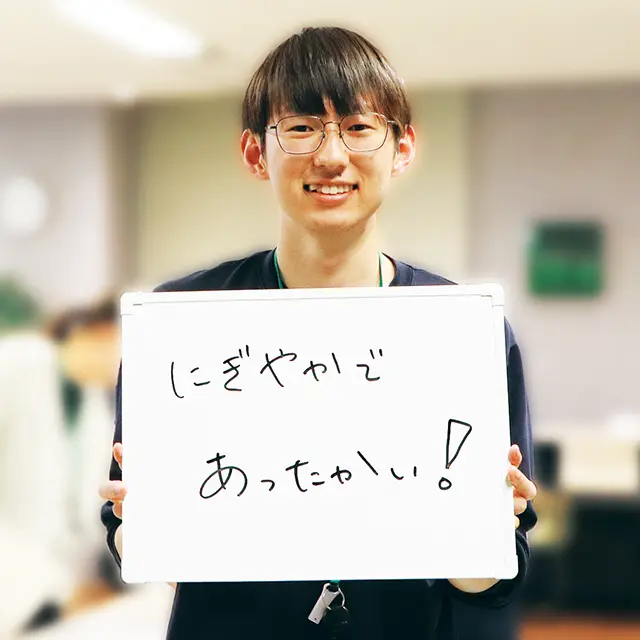 にぎやかで
あったかい!